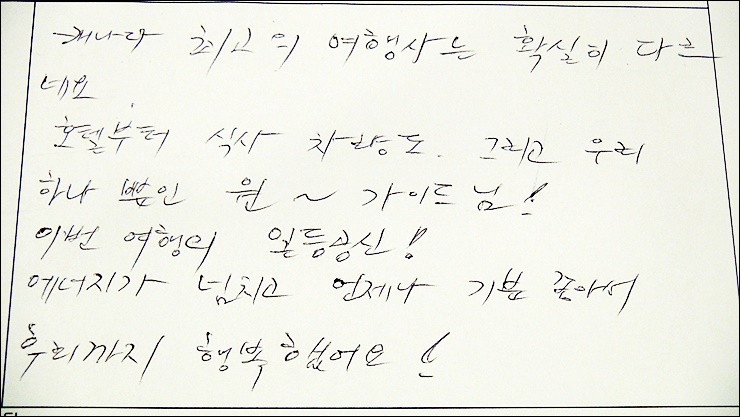 캐나다 최고의 여행사는 확실히 다르
네요.
호텔부터 식사 차량도. 그리고 우리
하나 뿐인 원~ 가이드님!
이번 여행의 일등공신!
에너지가 넘치고 언제나 기분 좋아서
우리까지 행복했어요!!